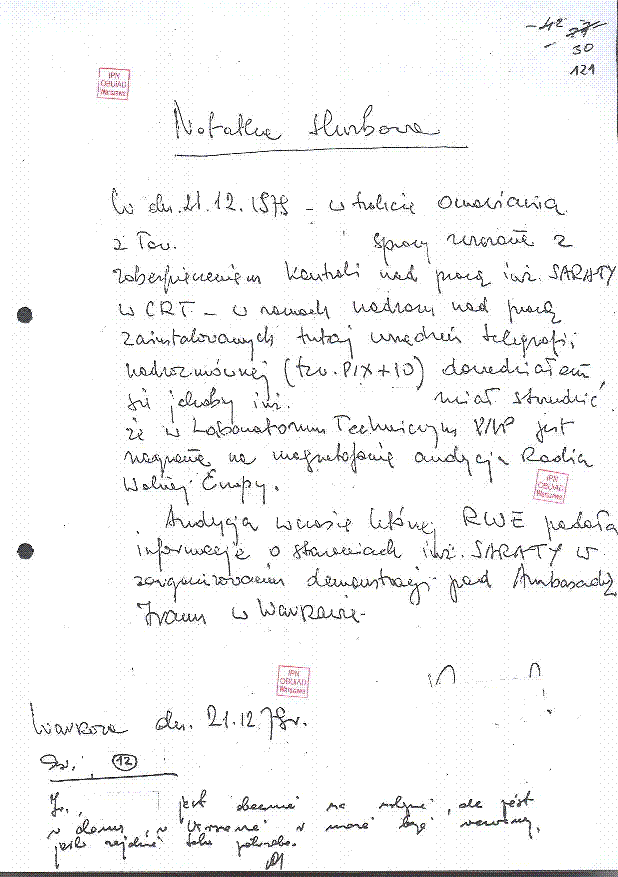 -42 27
- 30
121
IPN
OBUiAD
Warszawa
Notatka służbowa
W dn. 21.12.1979 - w trakcie omawiania
z Tow. sprawy związanej z
zabezpieczeniem kontroli nad pracą inż. SARATY
w CRT - w ramach nadzoru nad pracą
zainstalowanych tutaj urządzeń telegrafii
nadrozmównej (tzw. PIX+10) dowiedziałem
się jakoby inż. miał stwierdzić,
że w Laboratorium Technicznym jest
nagrana na magnetofonie audycja Radia
Wolnej Europy.
IPN
OBUiAD
Warszawa
Audycja w czasie której RWE podała
informacje o staraniach inż. SARATY w
zorganizowaniu demonstracji pod Ambasadą
Iranu w Warszawie.
IPN
OBUiAD
Warszawa
Warszawa dn. 21.12.79r.
12
jest obecnie na, ale jest
w domu, w i może być
jeśli zajdzie taka potrzeba.